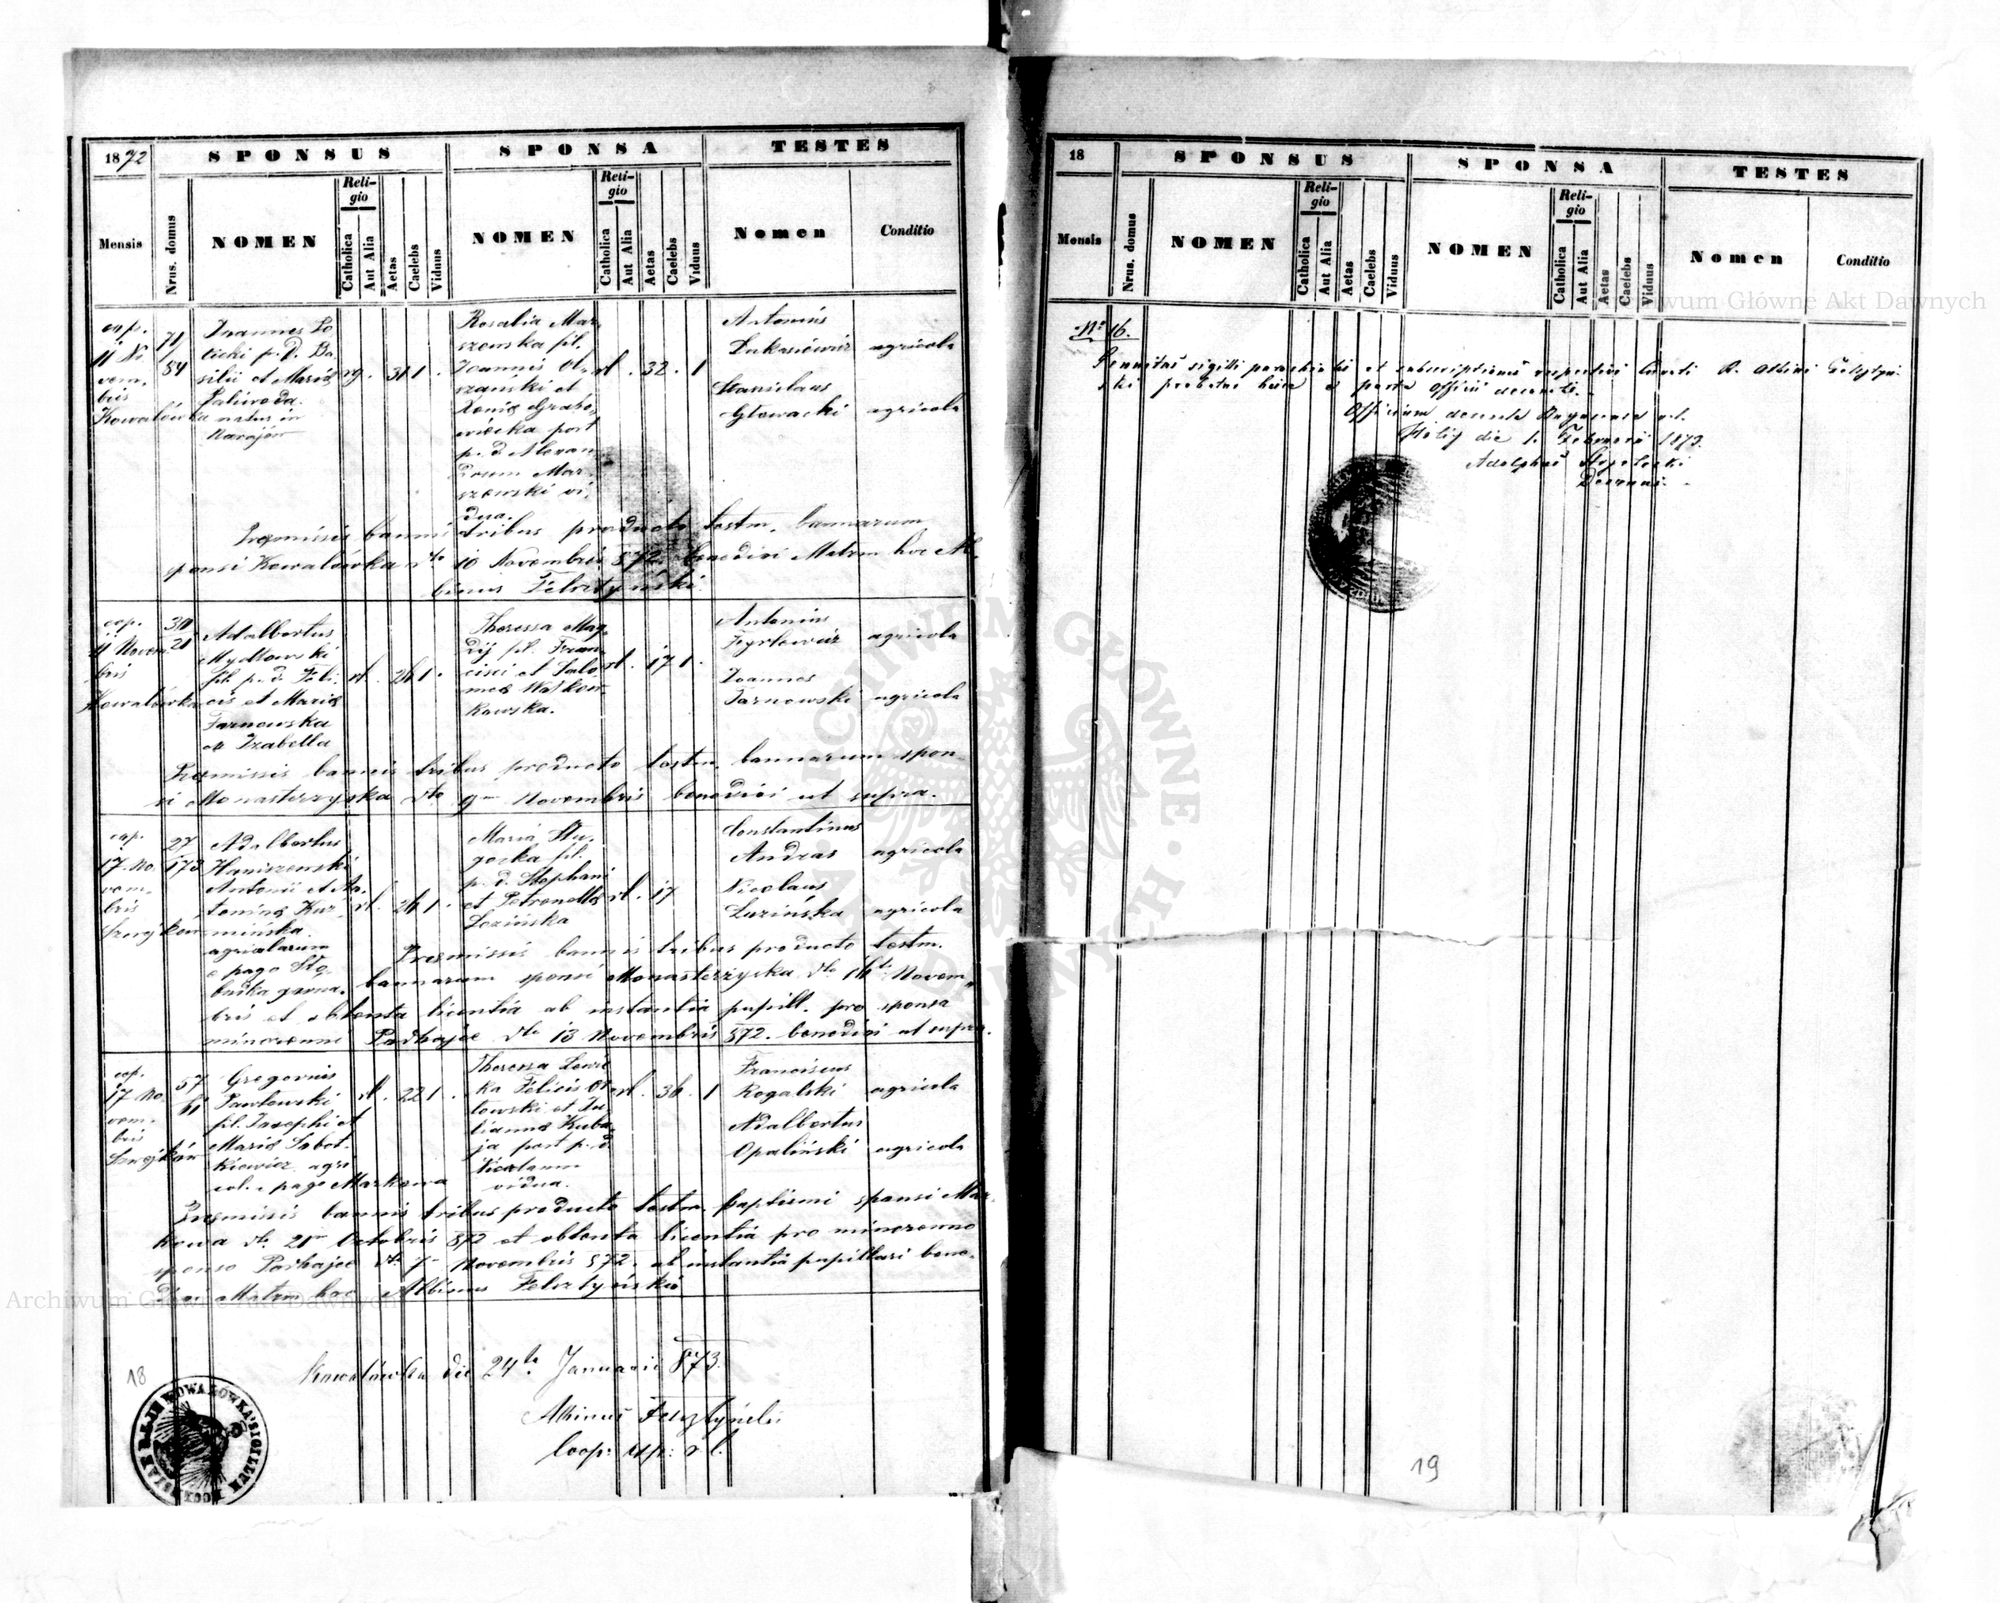 1872
SPONSUS
SPONSA
TESTES
Mensis
Nrus. domus
NOMEN
Religio
Catholica
Aut Alia
Aetas
Caelebs
Viduus
NOMEN
Religio
Catholica
Aut Alia
Aetas
Caelebs
Viduus
Nomen
Conditio
cap.
11 No
vem.
bris
Kowalówka
71
84
Joannes Lo
p. d. Ba
silii et Mariæ
Paliwoda
natus in
Narajów
31 1
Rosalia Mar
szewska fil.
Joannis Ol
szanski et
Xeniæ Grabo
wiecka post
p. d. Alexan
drum Mar
szewski vi
dua.
rl. 32. 1
Antonius
Łukasiewicz agricola
Stanislaus
Głowacki agricola
Præmissis bannis tribus producto testm. bannarum
sponsi Kowalówka dto 10 Novembris 872 benedixi Matrm hoc Al
binus Felsztyński
cap.
11 Novem
bris
Kowalówka
30
21
Adalbertus
Mydłowski
fil. p. d. Feli
cis et Mariæ
Tarnowska
et Izabella
rl. 26 1.
Theressa Mag
dij fil. Fran
cisci et Salo
meæ Waśkow
kowska.
rl. 17 1.
Antonius
Fyrlewicz agricola
Joannes
Tarnowski agricola
Præmissis bannis tribus producto testm. bannarum spon
si Monasterzyska dto 9 Novembris benedixi ut supra.
cap.
17. No.
vem.
bris
27
173
Adalbertus
Haniszewski
Antonii et An
toninæ Kur
mińska
agricolarum
e pago Sło
budka gorna.
rl. 26 1.
Maria Słu
gocka fil.
p. d. Stephani
et Petronellæ
Lozińska
rl. 17
Constantinus
Andras agricola
Nicolaus
Luzińska agricola
Præmissis bannis tribus producto testm.
bannarum sponsi Monasterzyska dto 16 Novem
bris et obtenta licentia ab instantia pupill. pro sponsa
minorenni Podhajce dto 13 Novembris 872. benedixi ut supra.
cap.
17. No.
vem.
bris
57
61
Gregorius
Pawłowski
fil. Josephi et
Mariæ Sobot
kiewicz agri
col. e pago Markowa
rl. 22 1.
Theressa Lewic
ka Felicis Ol
towski et Ju
liannæ Kuba
ja post p. d.
Nicolaum
vidua.
rl. 36. 1
Franciscus
Rogalski agricola
Adalbertus
Opaliński agricola
Præmissis bannis tribus producto testm. baptismi sponsi Mar
kowa dto 21 Octobris 872 et obtenta licentia pro minorenno
sponso Podhajce dto 7 Novembris 872. ab instantia pupillari bene.
dixi Matrm hoc Albinus Felsztyński
Kowalówka die 24ta Januarii 873.
Albinus Felsztyński
Coop. r. l.
18
18
SPONSUS
SPONSA
TESTES
Mensis
Nrus. domus
NOMEN
Religio
Catholica
Aut Alia
Aetas
Caelebs
Viduus
NOMEN
Religio
Catholica
Aut Alia
Aetas
Caelebs
Viduus
Nomen
Conditio
No 16.
sigilli parochialis et subscriptionis respectivi Curati R. Albini Felsztyń
ski a parte Officii decanalis.
Officium decanale r. l.
die 1. Februarii 1873.
Adolphus
Decanus.
19
Archiwum Główne Akt Dawnych
Archiwum Główne Akt Dawnych
ARCHIWUM GŁÓWNE · AKT DAWNYCH ·